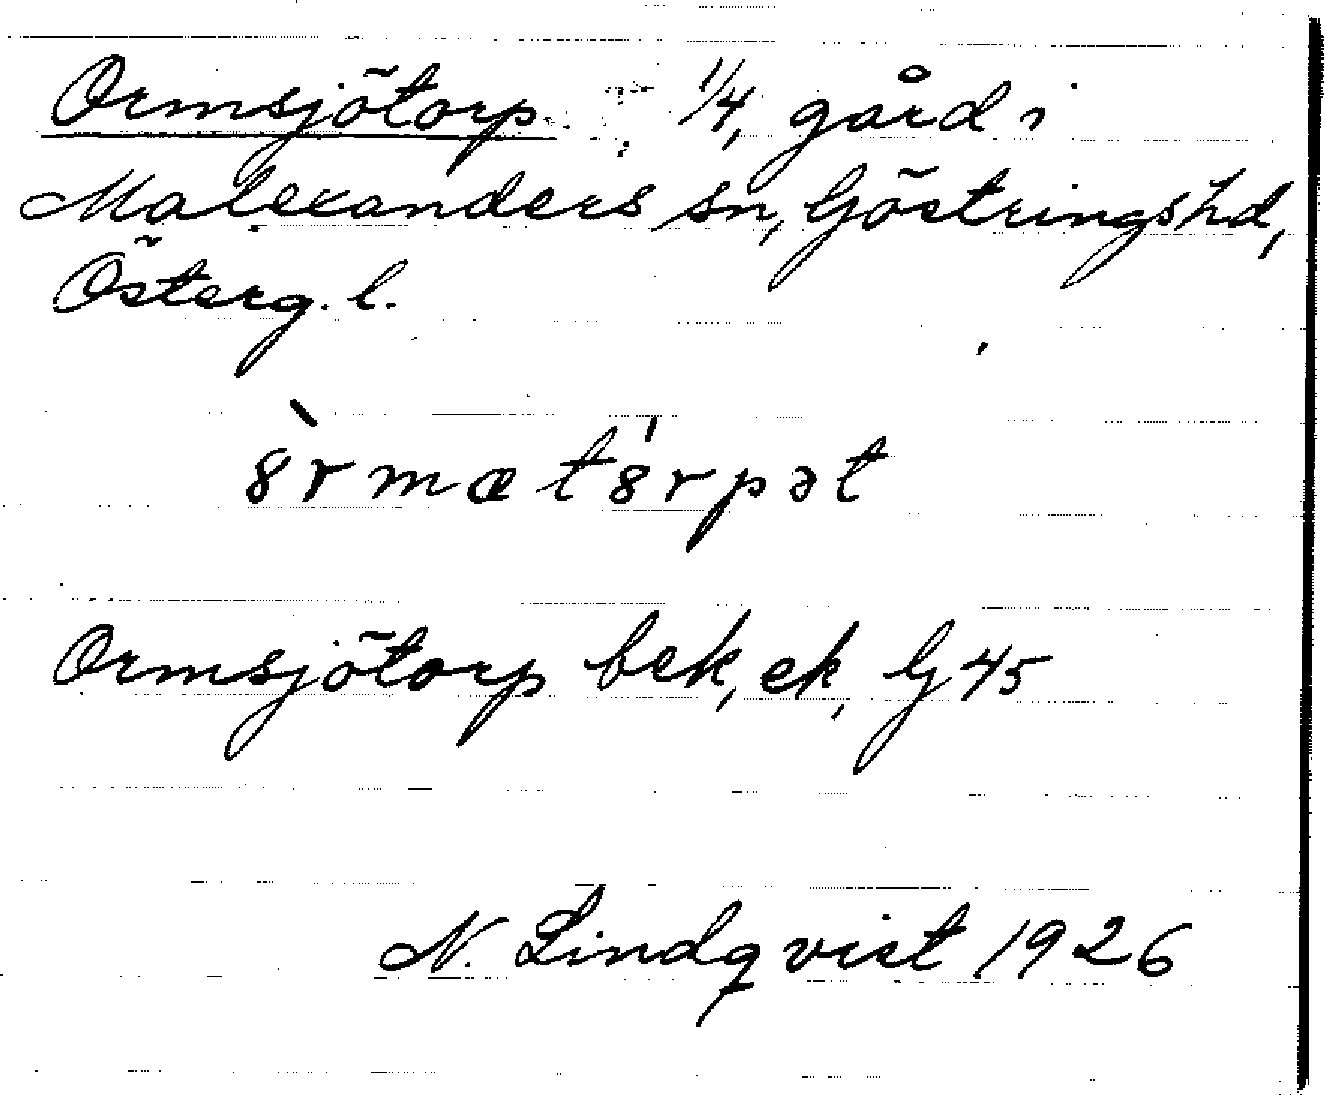 Ormsjötorp 1/4, gård i
Malexanders sn, Göstringshd,
Österg. l.
8̀rmæt8́rpət
Ormsjötorp bek, ek, G 45
N. Lindqvist 1926